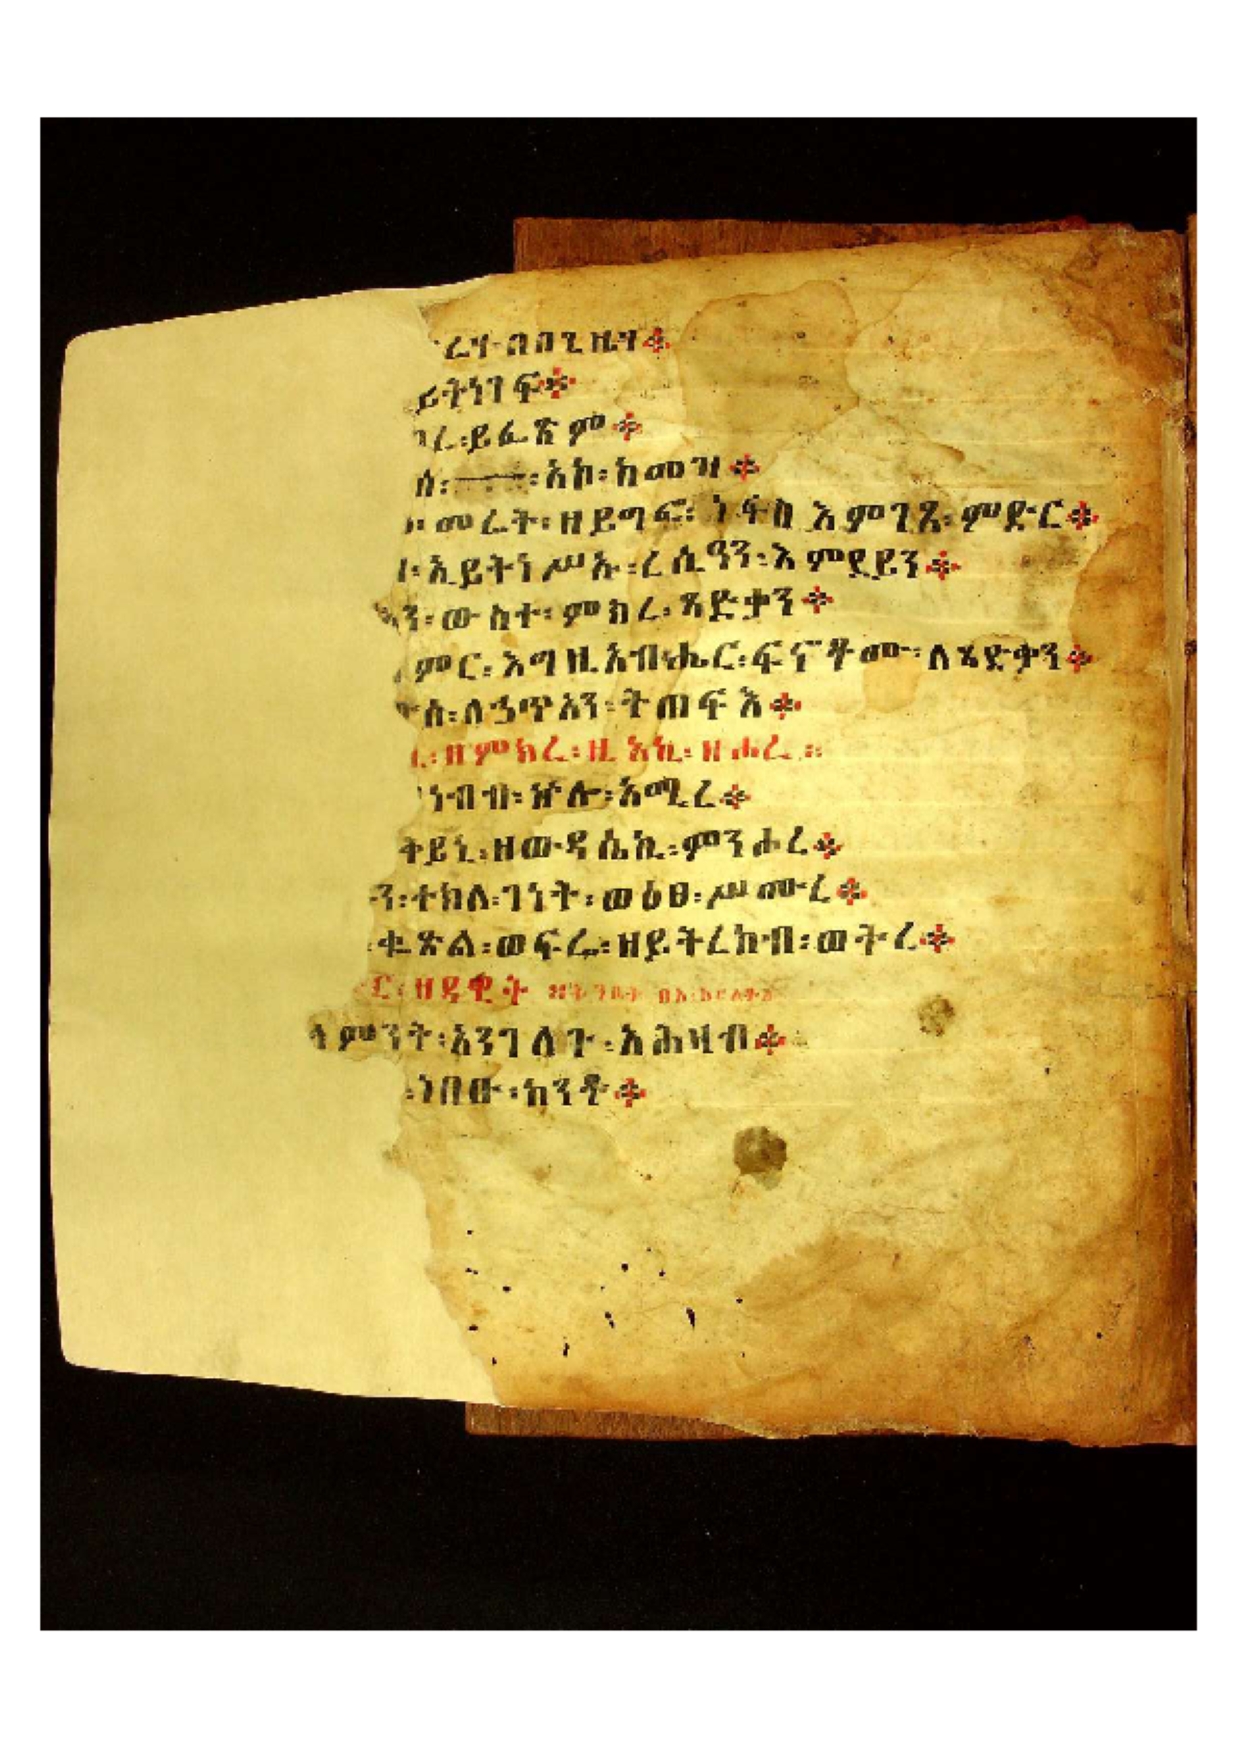 ፍሬሃ፡ በበጊዜሃ፨
ይትነገፍ፨
ገረ፡ ይፌጽም፨
ሰ፡ አኮ፡ ከመዝ፨
መሬት፡ ዘይግፍ፡ ነፋስ እምገጸ፡ ምድር፨
ኢይትነሥኡ፡ ረሲዓን፡ እምደይን፨
ን፡ ውስተ፡ ምክረ፡ ጻድቃን፨
ምር፡ እግዚአብሔር፡ ፍኖቶሙ፡ ለጻድቃን፨
ሰ፡ ለኃጥአን፡ ትጠፍእ፨
ዘምክረ፡ ዚአኪ፡ ዘሐረ፡፡
ነብብ፡ ኵሎ፡ አሚረ፨
ቅድይኒ፡ ዘውዳሴኪ፡ ምንሐረ፨
ን፡ ተክለ፡ ገነት፡ ወዕፀ፡ ሥሙረ፨
ቈጽል፡ ወፍሬ፡ ዘይትረከብ፡ ወትረ፨
ር፡ ዘዳዊት
ለምንት፡ አንገለጉ፡ አሕዛብ፨
ነበቡ፡ ከንቶ፨